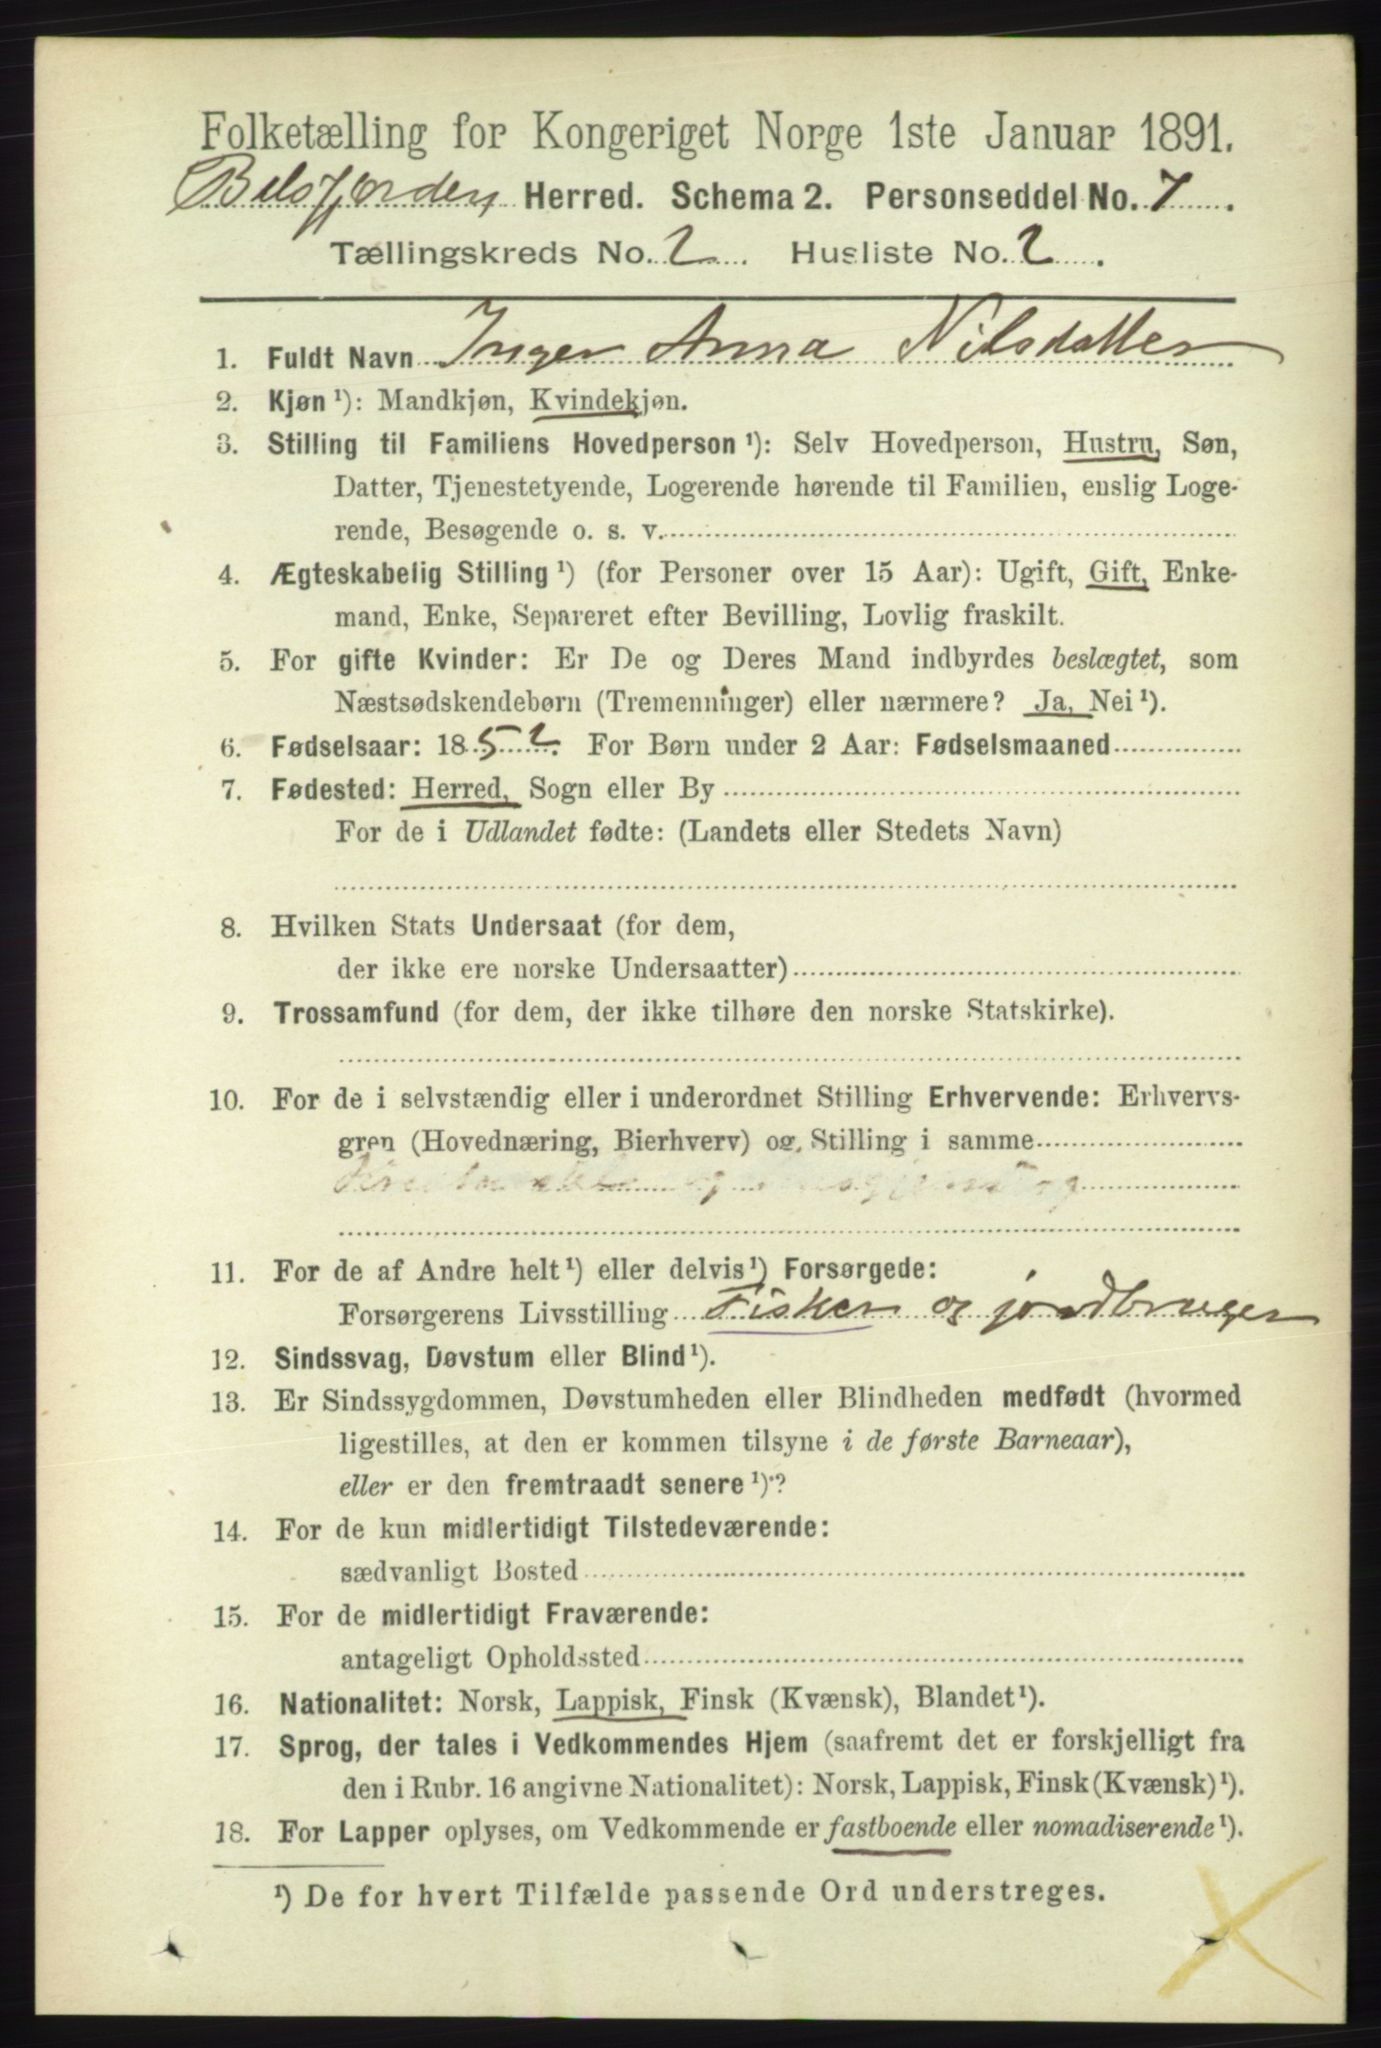 Folketælling for Kongeriget Norge 1ste Januar 1891.
Balsfjorden Herred. Schema 2. Personseddel No. 7.
Tællingskreds No. 2. Husliste No. 2.
1. Fuldt Navn Inger Anna Nilsdatter
2. Kjøn ¹): Mandkjøn, Kvindekjøn.
3. Stilling til Familiens Hovedperson ¹): Selv Hovedperson, Hustru, Søn,
Datter, Tjenestetyende, Logerende hørende til Familien, enslig Loge-
rende, Besøgende o. s. v.
4. Ægteskabelig Stilling ¹) (for Personer over 15 Aar): Ugift, Gift, Enke-
mand, Enke, Separeret efter Bevilling, Lovlig fraskilt.
5. For gifte Kvinder: Er De og Deres Mand indbyrdes beslægtet, som
Næstsødskendebørn (Tremenninger) eller nærmere? Ja, Nei ¹).
6. Fødselsaar: 1852. For Børn under 2 Aar: Fødselsmaaned
7. Fødested: Herred, Sogn eller By
For de i Udlandet fødte: (Landets eller Stedets Navn)
8. Hvilken Stats Undersaat (for dem,
der ikke ere norske Undersaatter)
9. Trossamfund (for dem, der ikke tilhøre den norske Statskirke).
10. For de i selvstændig eller i underordnet Stilling Erhvervende: Erhvervs-
gren (Hovednæring, Bierhverv) og Stilling i samme
og
11. For de af Andre helt ¹) eller delvis ¹) Forsørgede:
Forsørgerens Livsstilling Fisker og jordbruger
12. Sindssvag, Døvstum eller Blind ¹).
13. Er Sindssygdommen, Døvstumheden eller Blindheden medfødt (hvormed
ligestilles, at den er kommen tilsyne i de første Barneaar),
eller er den fremtraadt senere ¹)?
14. For de kun midlertidigt Tilstedeværende:
sædvanligt Bosted
15. For de midlertidigt Fraværende:
antageligt Opholdssted
16. Nationalitet: Norsk, Lappisk, Finsk (Kvænsk), Blandet ¹).
17. Sprog, der tales i Vedkommendes Hjem (saafremt det er forskjelligt fra
den i Rubr. 16 angivne Nationalitet): Norsk, Lappisk, Finsk (Kvænsk) ¹).
18. For Lapper oplyses, om Vedkommende er fastboende eller nomadiserende ¹).
¹) De for hvert Tilfælde passende Ord understreges.